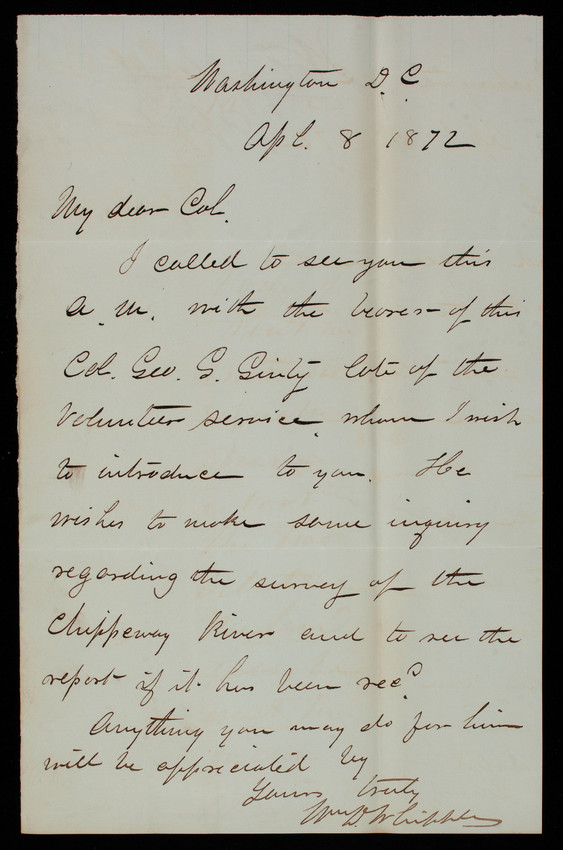 Washington D.C.
Apl. 8 1872
My dear Col.
I called to see you this
A.M. with the bearer of this
Col. Geo. G. Ginty late of the
Volunteer service whom I wish
to introduce to you. He
wishes to make some inquiry
regarding the survey of the
Chippeway River and to see the
report if it has been recd.
Anything you may do for him
will be appreciated by
Yours truly
Wm. D. Whipple